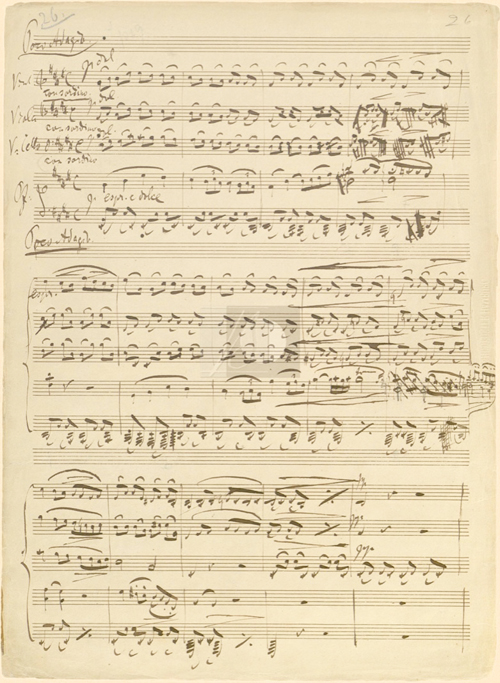 26.
26
Poco Adagio.
Viol
p dol
con sordino
Viola
p dol
con sordino
V.cello
con sordino
Pf.
p. espr. e dolce
Poco Adagio.
espr.
pp.